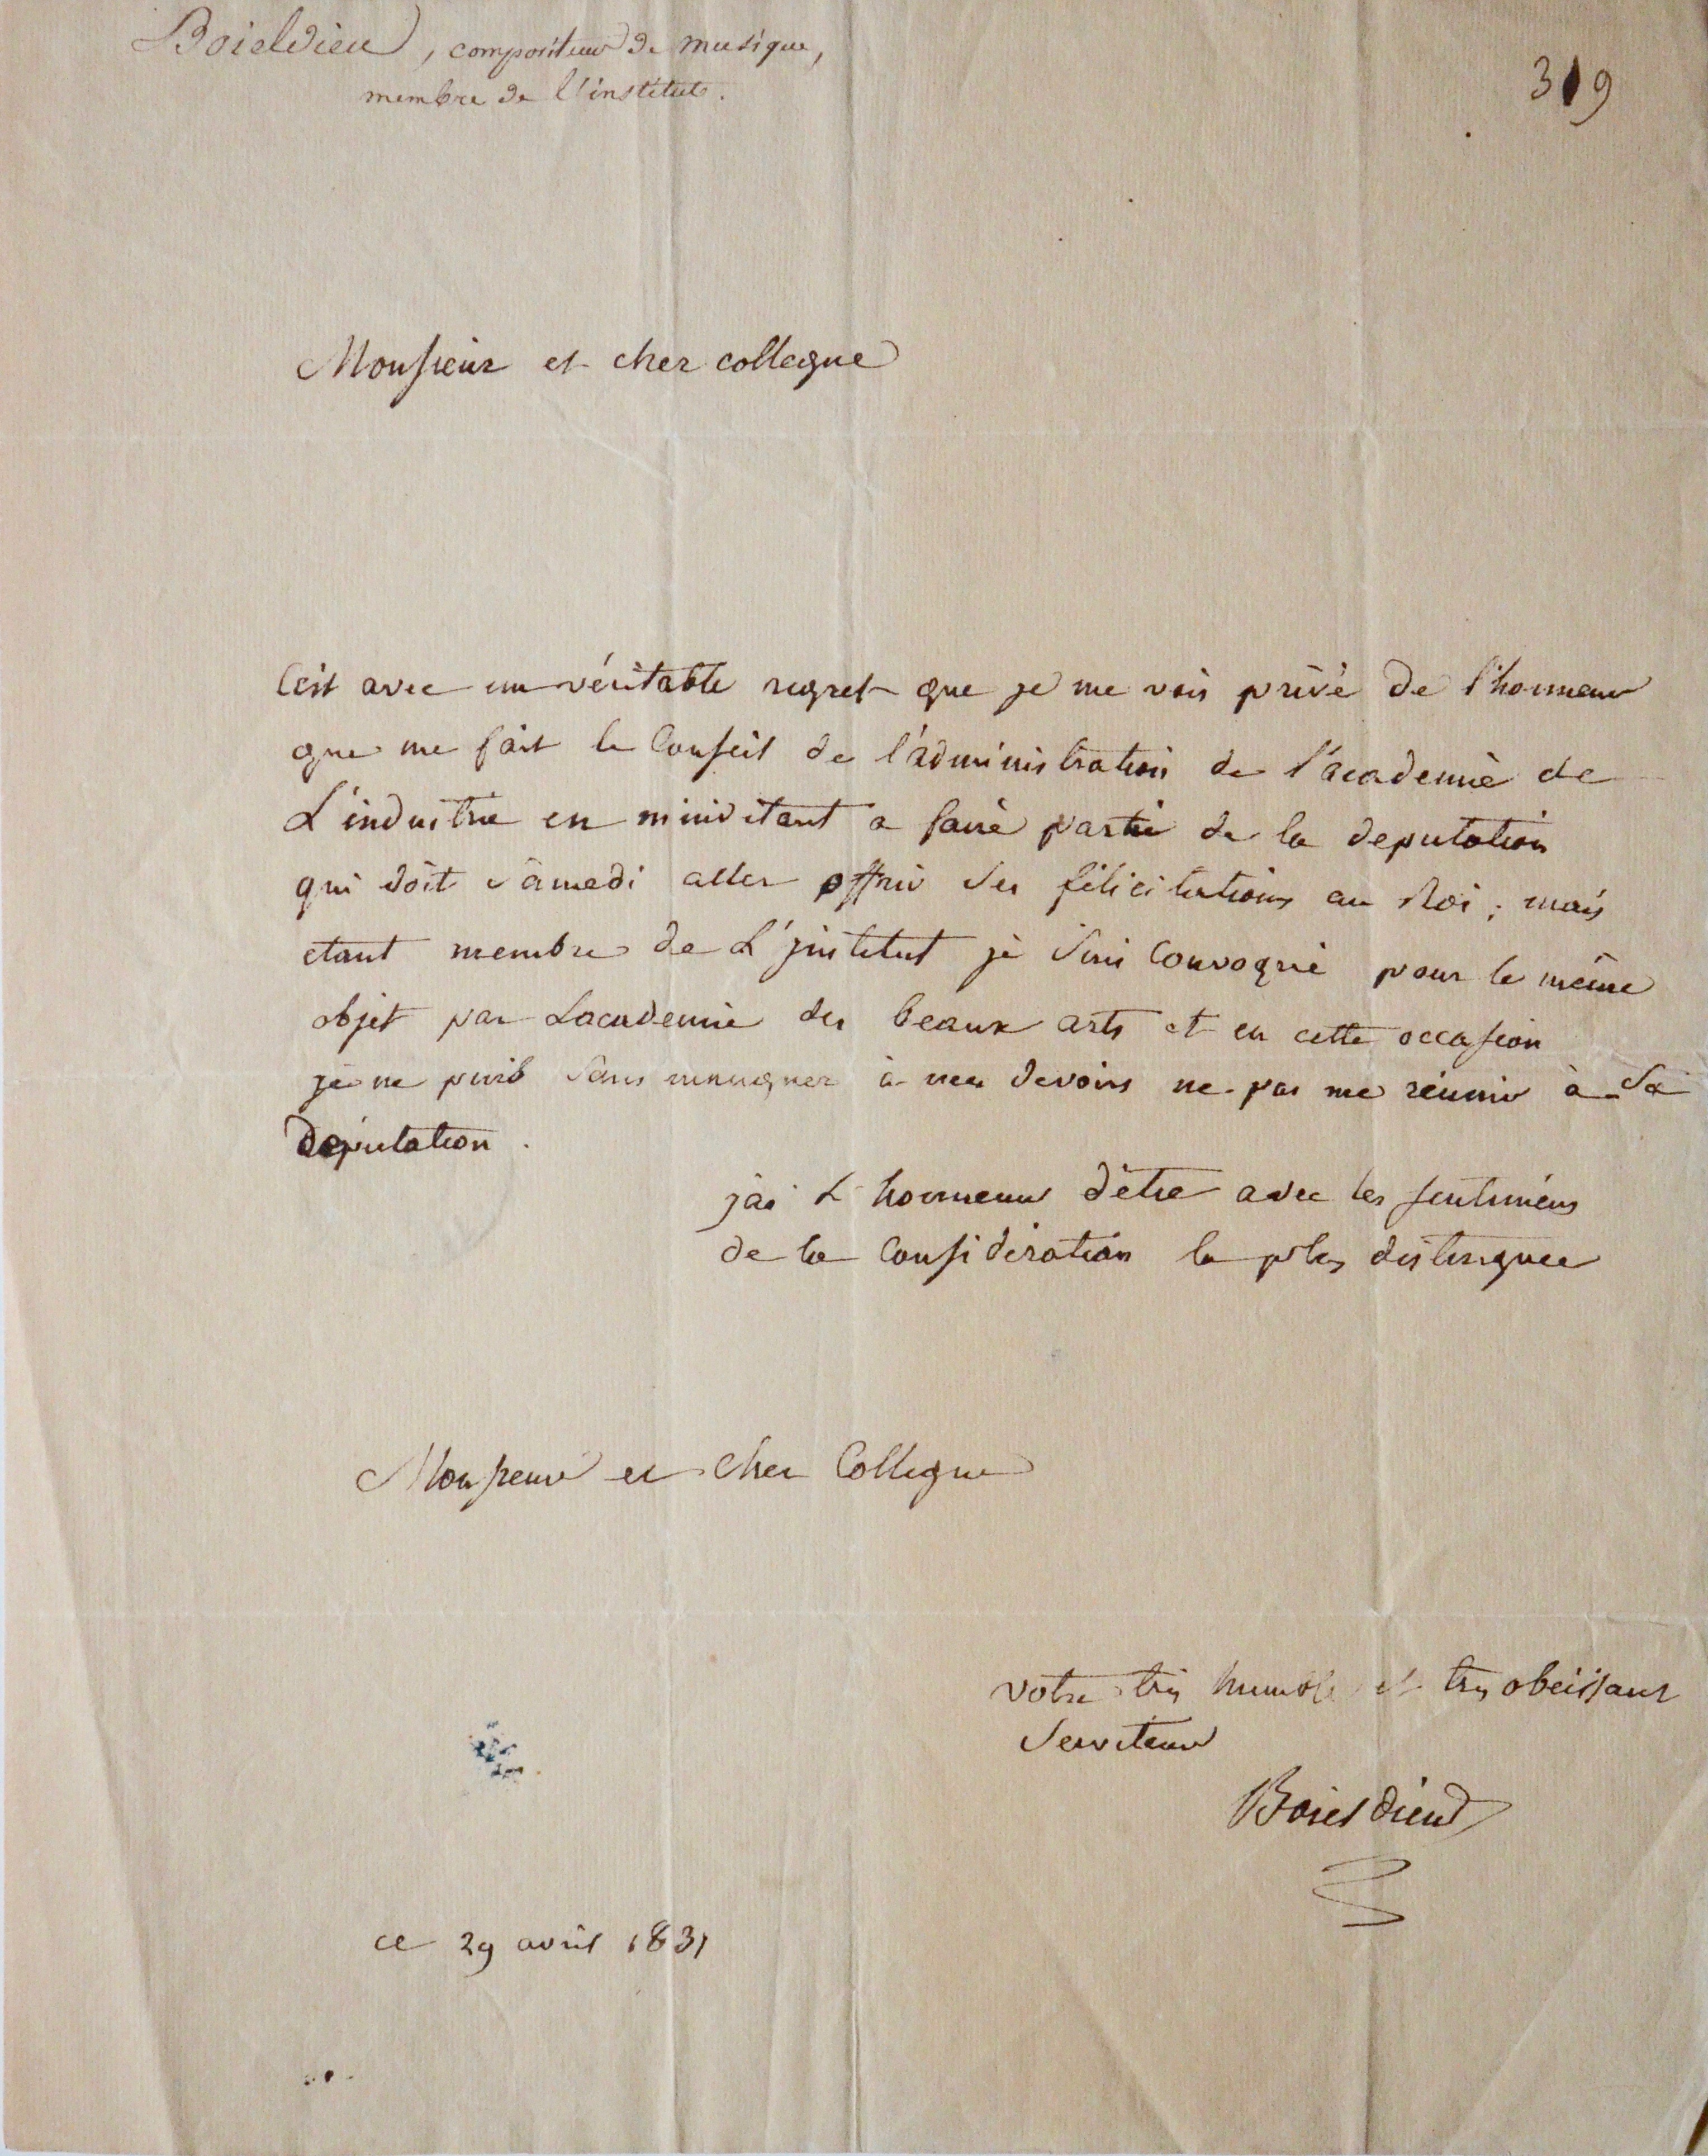 Boieldieu, compositeur de musique,
membre de l'institut.
319
Monsieur et cher collegue
C'est avec un véritable regret que je me vois privé de l'honneur
que me fait le Conseil de l'administration de l'academie de
L'industrie en m'invitant a faire partie de la deputation
qui doit samedi aller offrir ses félicitations au Roi ; mais
etant membre de L'jnstitut je suis Convoqué pour le même
objet par Lacademie des beaux arts et en cette occasion
je ne puis sans manquer à mes devoirs ne pas me réunir à sa
députation.
j'ai L'honneur d'être avec les sentimens
de la Considération la plus distinguee
Monsieur et cher Collegue
votre très humble et très obeissant
Serviteur
Boieldieu
ce 29 avril 1831